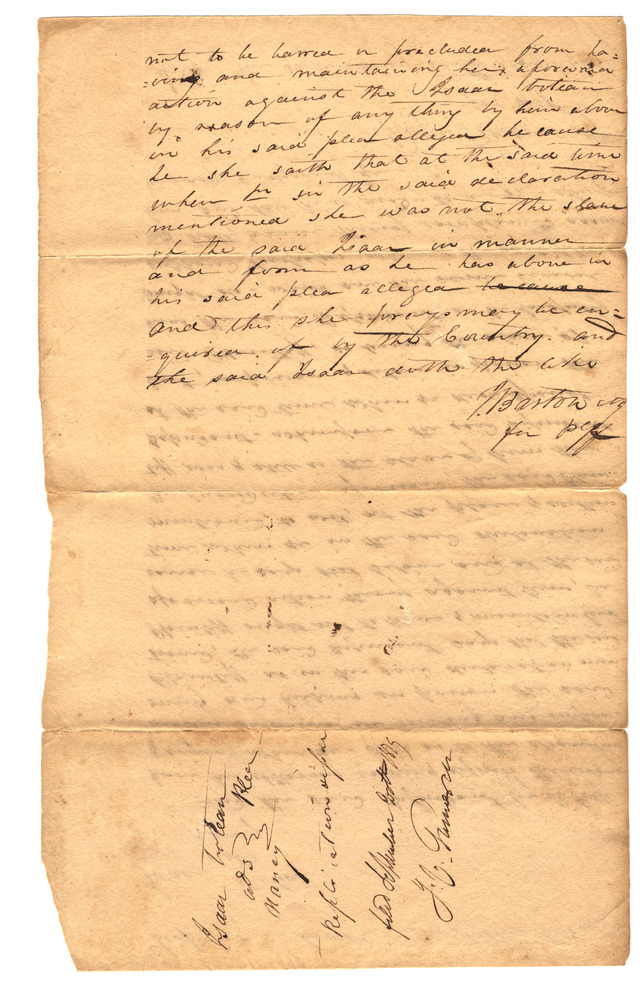 not to be barred or precluded from ha-
-ving and maintaining her aforesaid
action against the Isaac Votean
by reason of any thing by him above
in his said plea alleged because
he she saith that at the said time
when &c in the said declaration
mentioned she was not the slave
of the said Isaac in manner
and form as he has above in
his said plea alleged because
and this she prays may be en-
-quired of by the Country and
the said Isaac doth the like
J. Barton atty
for plff
Isaac
ads } Plea
Nancy
Replication &
filed September 20th 1819